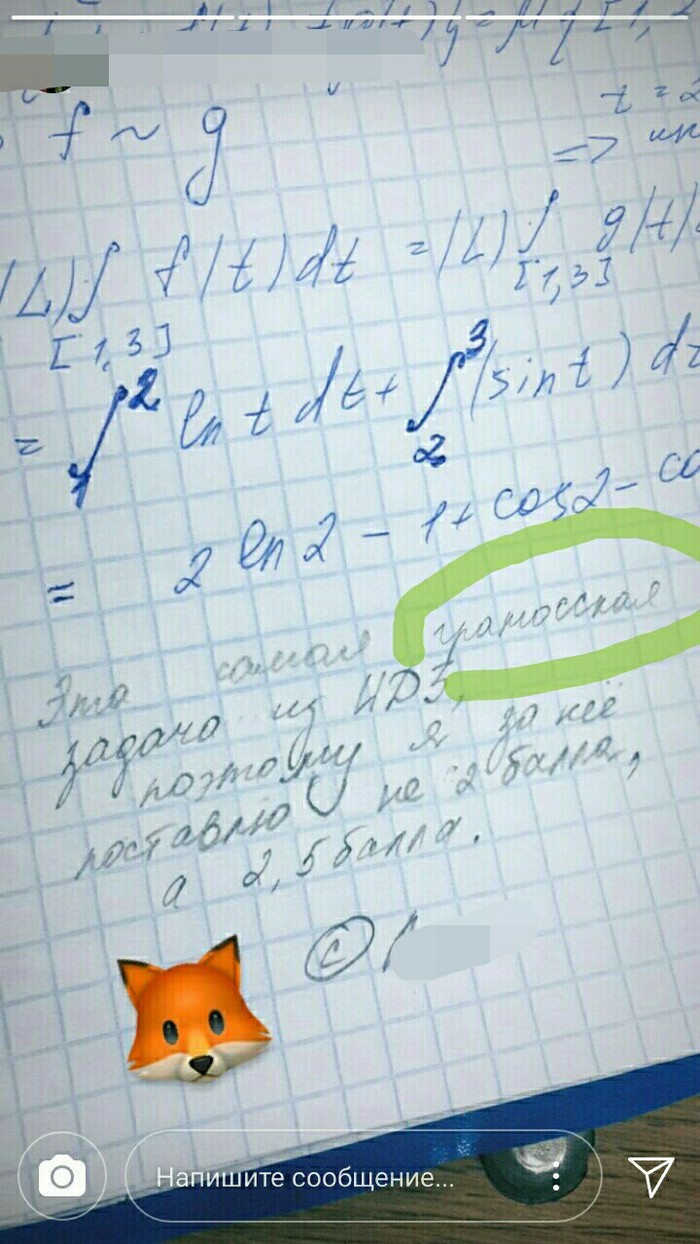 f ~ g
t = 2
=>
(L)∫ f(t)dt = (L)∫ g(t)
[1,3] [1,3]
= ∫₁² ln t dt + ∫₂³ (sin t) dt
= 2 ln 2 - 1 + cos2 -
Это самая грамосская
задача из ИДЗ,
поэтому я за неё
поставлю не 2 балла,
а 2,5 балла.
©
Напишите сообщение...